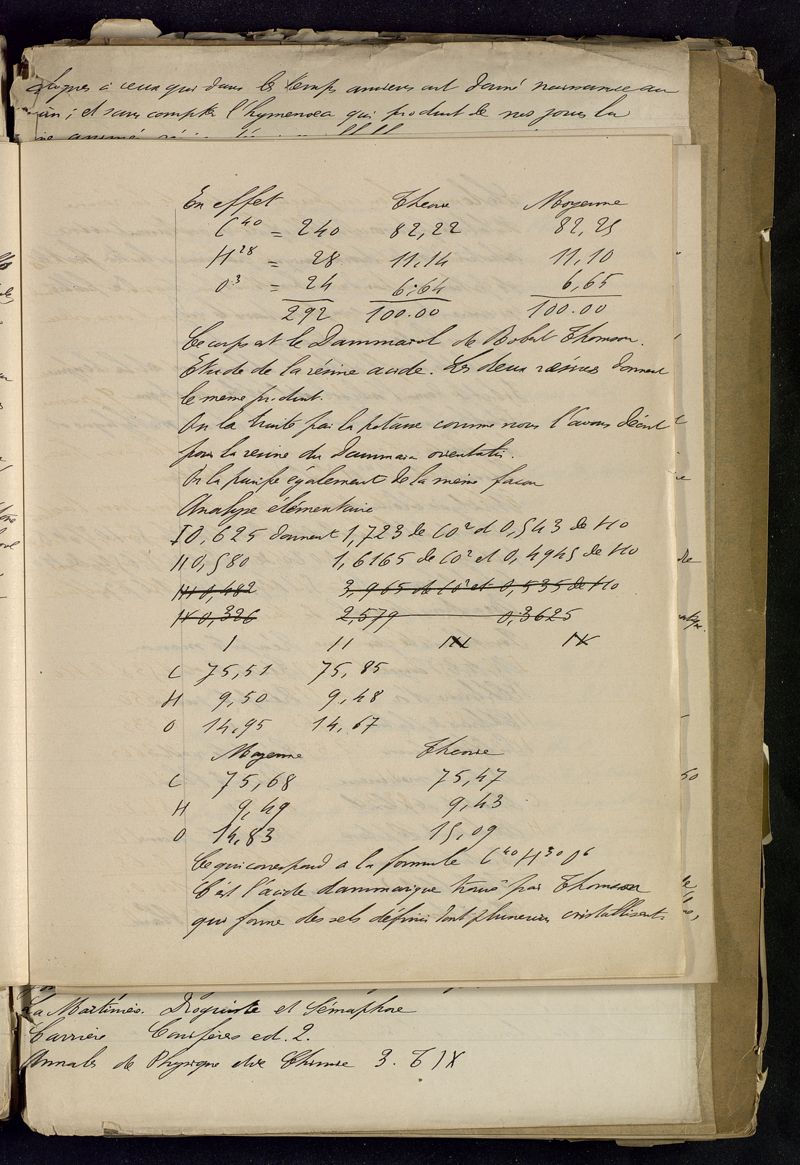 à ceux qui dans les temps anciens ont donné naissance au
; et sans compter l'hymenoea qui produit de nos jours la
En effet Theorie Moyenne
C⁴⁰ = 240 82,22 82,25
H²⁸ = 28 11,14 11,10
O³ = 24 6,64 6,65
292 100.00 100.00
Ce corps est le Dammarol de Robert Thomson.
Etude de la résine acide. Les deux résines donnent
le même produit.
On la traite par la potasse comme nous l'avons décrit
pour la resine du Dammara orientalis.
On la purifie également de la même facon
Analyse élémentaire
I 0,625 donnent 1,723 de CO² et 0,543 de HO
II 0,580 1,6165 de CO² et 0,4945 de HO
III 0,482 3,965 de CO² et 0,535 de HO
IV 0,326 2,579 0,3625
I II III IV
C 75,51 75,85
H 9,50 9,48
O 14,95 14,67
Moyenne Theorie
C 75,68 75,47
H 9,49 9,43
O 14,83 15,09
Ce qui correspond a la formule C⁴⁰ H³⁰ O⁶
C'est l'acide dammarique trouvé par Thomson
qui forme des sels définis dont plusieurs cristallisent.
La Martinies. Droguiste et Sémaphore
Carrière Conifères ed. 2.
Annales de Physique et de Chimie 3. T IX